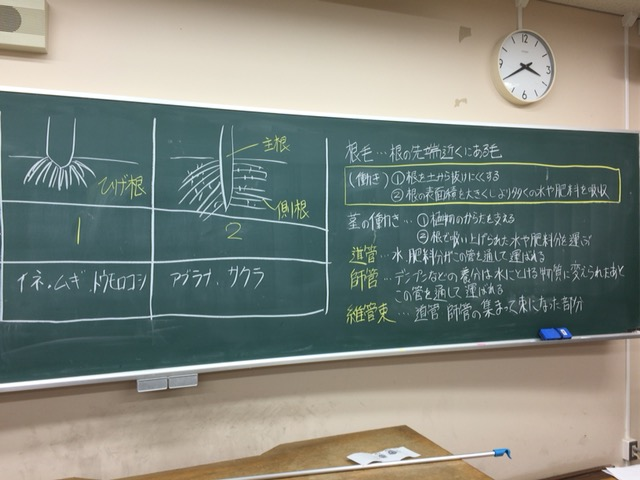 ひげ根
主根
側根
1
2
イネ・ムギ、トウモロコシ
アブラナ、サクラ
根毛…根の先端近くにある毛
(働き) ①根を土から抜けにくくする
②根の表面積を大きくしより多くの水や肥料を吸収
茎の働き…①植物のからだを支える
②根で吸い上げられた水や肥料分を運ぶ
道管…水、肥料分がこの管を通して運ばれる
師管…デンプンなどの養分は水にとける物質に変えられたあと
この管を通して運ばれる
維管束…道管 師管の集まって束になった部分
12
1
2
3
4
5
6
7
8
9
10
11